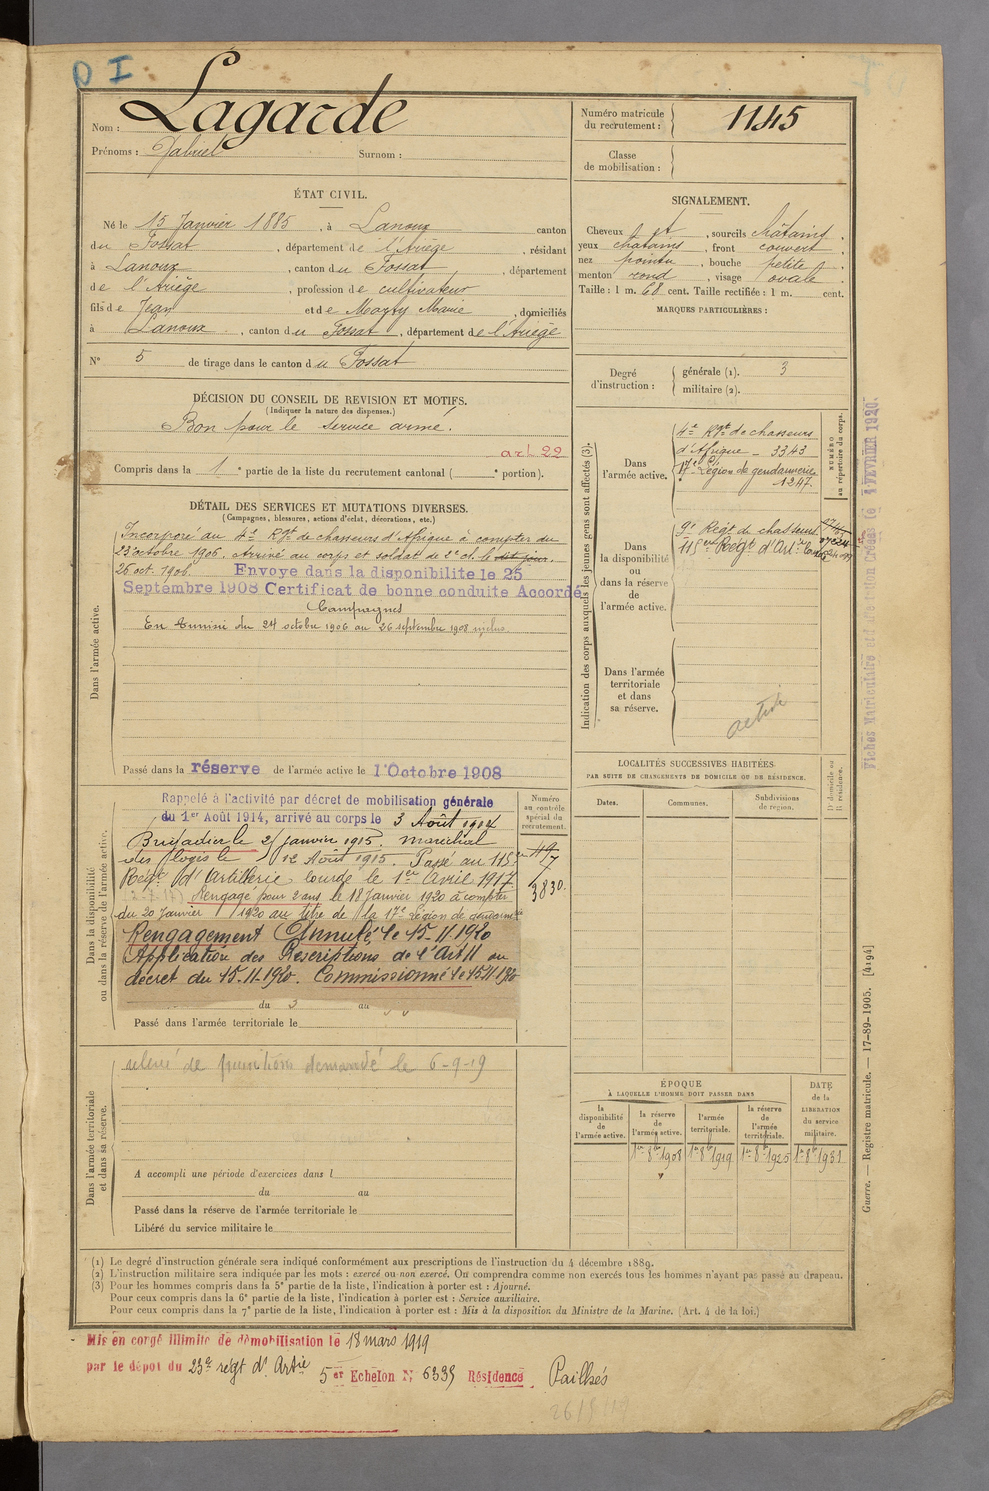 D I
Nom : Lagarde
Prénoms : Gabriel Surnom :
Numéro matricule
du recrutement : 1145
Classe
de mobilisation :
ÉTAT CIVIL.
Né le 15 Janvier 1885, à Lanoux canton
du Fossat, département de l'Ariège, résidant
à Lanoux, canton du Fossat, département
de l'Ariège, profession de cultivateur
fils de Jean et de Marty Marie, domiciliés
à Lanoux, canton du Fossat, département de l'Ariège
N° 5 de tirage dans le canton du Fossat
DÉCISION DU CONSEIL DE REVISION ET MOTIFS.
(Indiquer la nature des dispenses.)
Bon pour le service armé.
art. 22
Compris dans la 1e partie de la liste du recrutement cantonal ( e portion).
SIGNALEMENT.
Cheveux et, sourcils châtains.
yeux châtains, front couvert
nez pointu, bouche petite
menton rond, visage ovale
Taille : 1 m. 68 cent. Taille rectifiée : 1 m. cent.
MARQUES PARTICULIÈRES :
Degré
d'instruction :
générale (1). 3
militaire (2).
DÉTAIL DES SERVICES ET MUTATIONS DIVERSES.
(Campagnes, blessures, actions d'éclat, décorations, etc.)
Dans l'armée active.
Incorporé au 4e Rgt de chasseurs d'Afrique à compter du
23 octobre 1906. Arrivé au corps et soldat de 2e cl. le dit jour.
26 oct. 1906. Envoye dans la disponibilite le 25
Septembre 1908 Certificat de bonne conduite Accordé
Campagnes
En Tunisie du 24 octobre 1906 au 26 septembre 1908 inclus.
Passé dans la réserve de l'armée active le 1 Octobre 1908
Indication des corps auxquels les jeunes gens sont affectés (3).
NUMÉRO
au répertoire du corps.
Dans
l'armée active.
4e Rgt de chasseurs
d'Afrique - 3343
17e Légion de gendarmerie
1247
Dans
la disponibilité
ou
dans la réserve
de
l'armée active.
9e Regt de chasseurs
115e Regt d'Art.
Dans l'armée
territoriale
et dans
sa réserve.
active
Fiches Matriculaire et d'affectation Créées le 4 FEVRIER 1920.
LOCALITÉS SUCCESSIVES HABITÉES
PAR SUITE DE CHANGEMENTS DE DOMICILE OU DE RÉSIDENCE.
Dates. Communes. Subdivisions
de région.
D. domicile ou
R. résidence.
Dans la disponibilité
ou dans la réserve de l'armée active.
Numéro
au contrôle
spécial du
recrutement.
3830.
Rappelé à l'activité par décret de mobilisation générale
du 1er Août 1914, arrivé au corps le 3 Août 1914
Brigadier le 21 janvier 1915. maréchal
des logis le 12 Août 1915. Passé au 115e
Régt d'Artillerie lourde le 1er Avril 1917.
Rengagé pour 2 ans le 18 Janvier 1920 à compter
du 20 Janvier 1920 au titre de la 17e Légion de gendarmerie
Rengagement Annulé, le 15-11-1920
Application des Prescriptions de l'Art 11 du
décret du 15-11-1920. Commissionné le 15 11 1920
du 3 au
Passé dans l'armée territoriale le
Dans l'armée territoriale
et dans sa réserve.
relevé de punitions demandé le 6-9-19
A accompli une période d'exercices dans l
du au
Passé dans la réserve de l'armée territoriale le
Libéré du service militaire le
ÉPOQUE
À LAQUELLE L'HOMME DOIT PASSER DANS
la
disponibilité
de
l'armée active.
la réserve
de
l'armée active.
l'armée
territoriale.
la réserve
de
l'armée
territoriale.
DATE
de la
LIBÉRATION
du service
militaire.
1er 8bre 1908 1er 8bre 1919 1er 8bre 1925 1er 8bre 1931
Guerre. — Registre matricule. — 17-89-1905. [4194]
(1) Le degré d'instruction générale sera indiqué conformément aux prescriptions de l'instruction du 4 décembre 1889.
(2) L'instruction militaire sera indiquée par les mots : exercé ou non exercé. On comprendra comme non exercés tous les hommes n'ayant pas passé au drapeau.
(3) Pour les hommes compris dans la 5e partie de la liste, l'indication à porter est : Ajourné.
Pour ceux compris dans la 6e partie de la liste, l'indication à porter est : Service auxiliaire.
Pour ceux compris dans la 7e partie de la liste, l'indication à porter est : Mis à la disposition du Ministre de la Marine. (Art. 4 de la loi.)
Mis en congé illimité de démobilisation le 18 mars 1919
par le dépôt du 23e regt d'Artie 5 er Echelon N° 6335 Résidence Pailhés